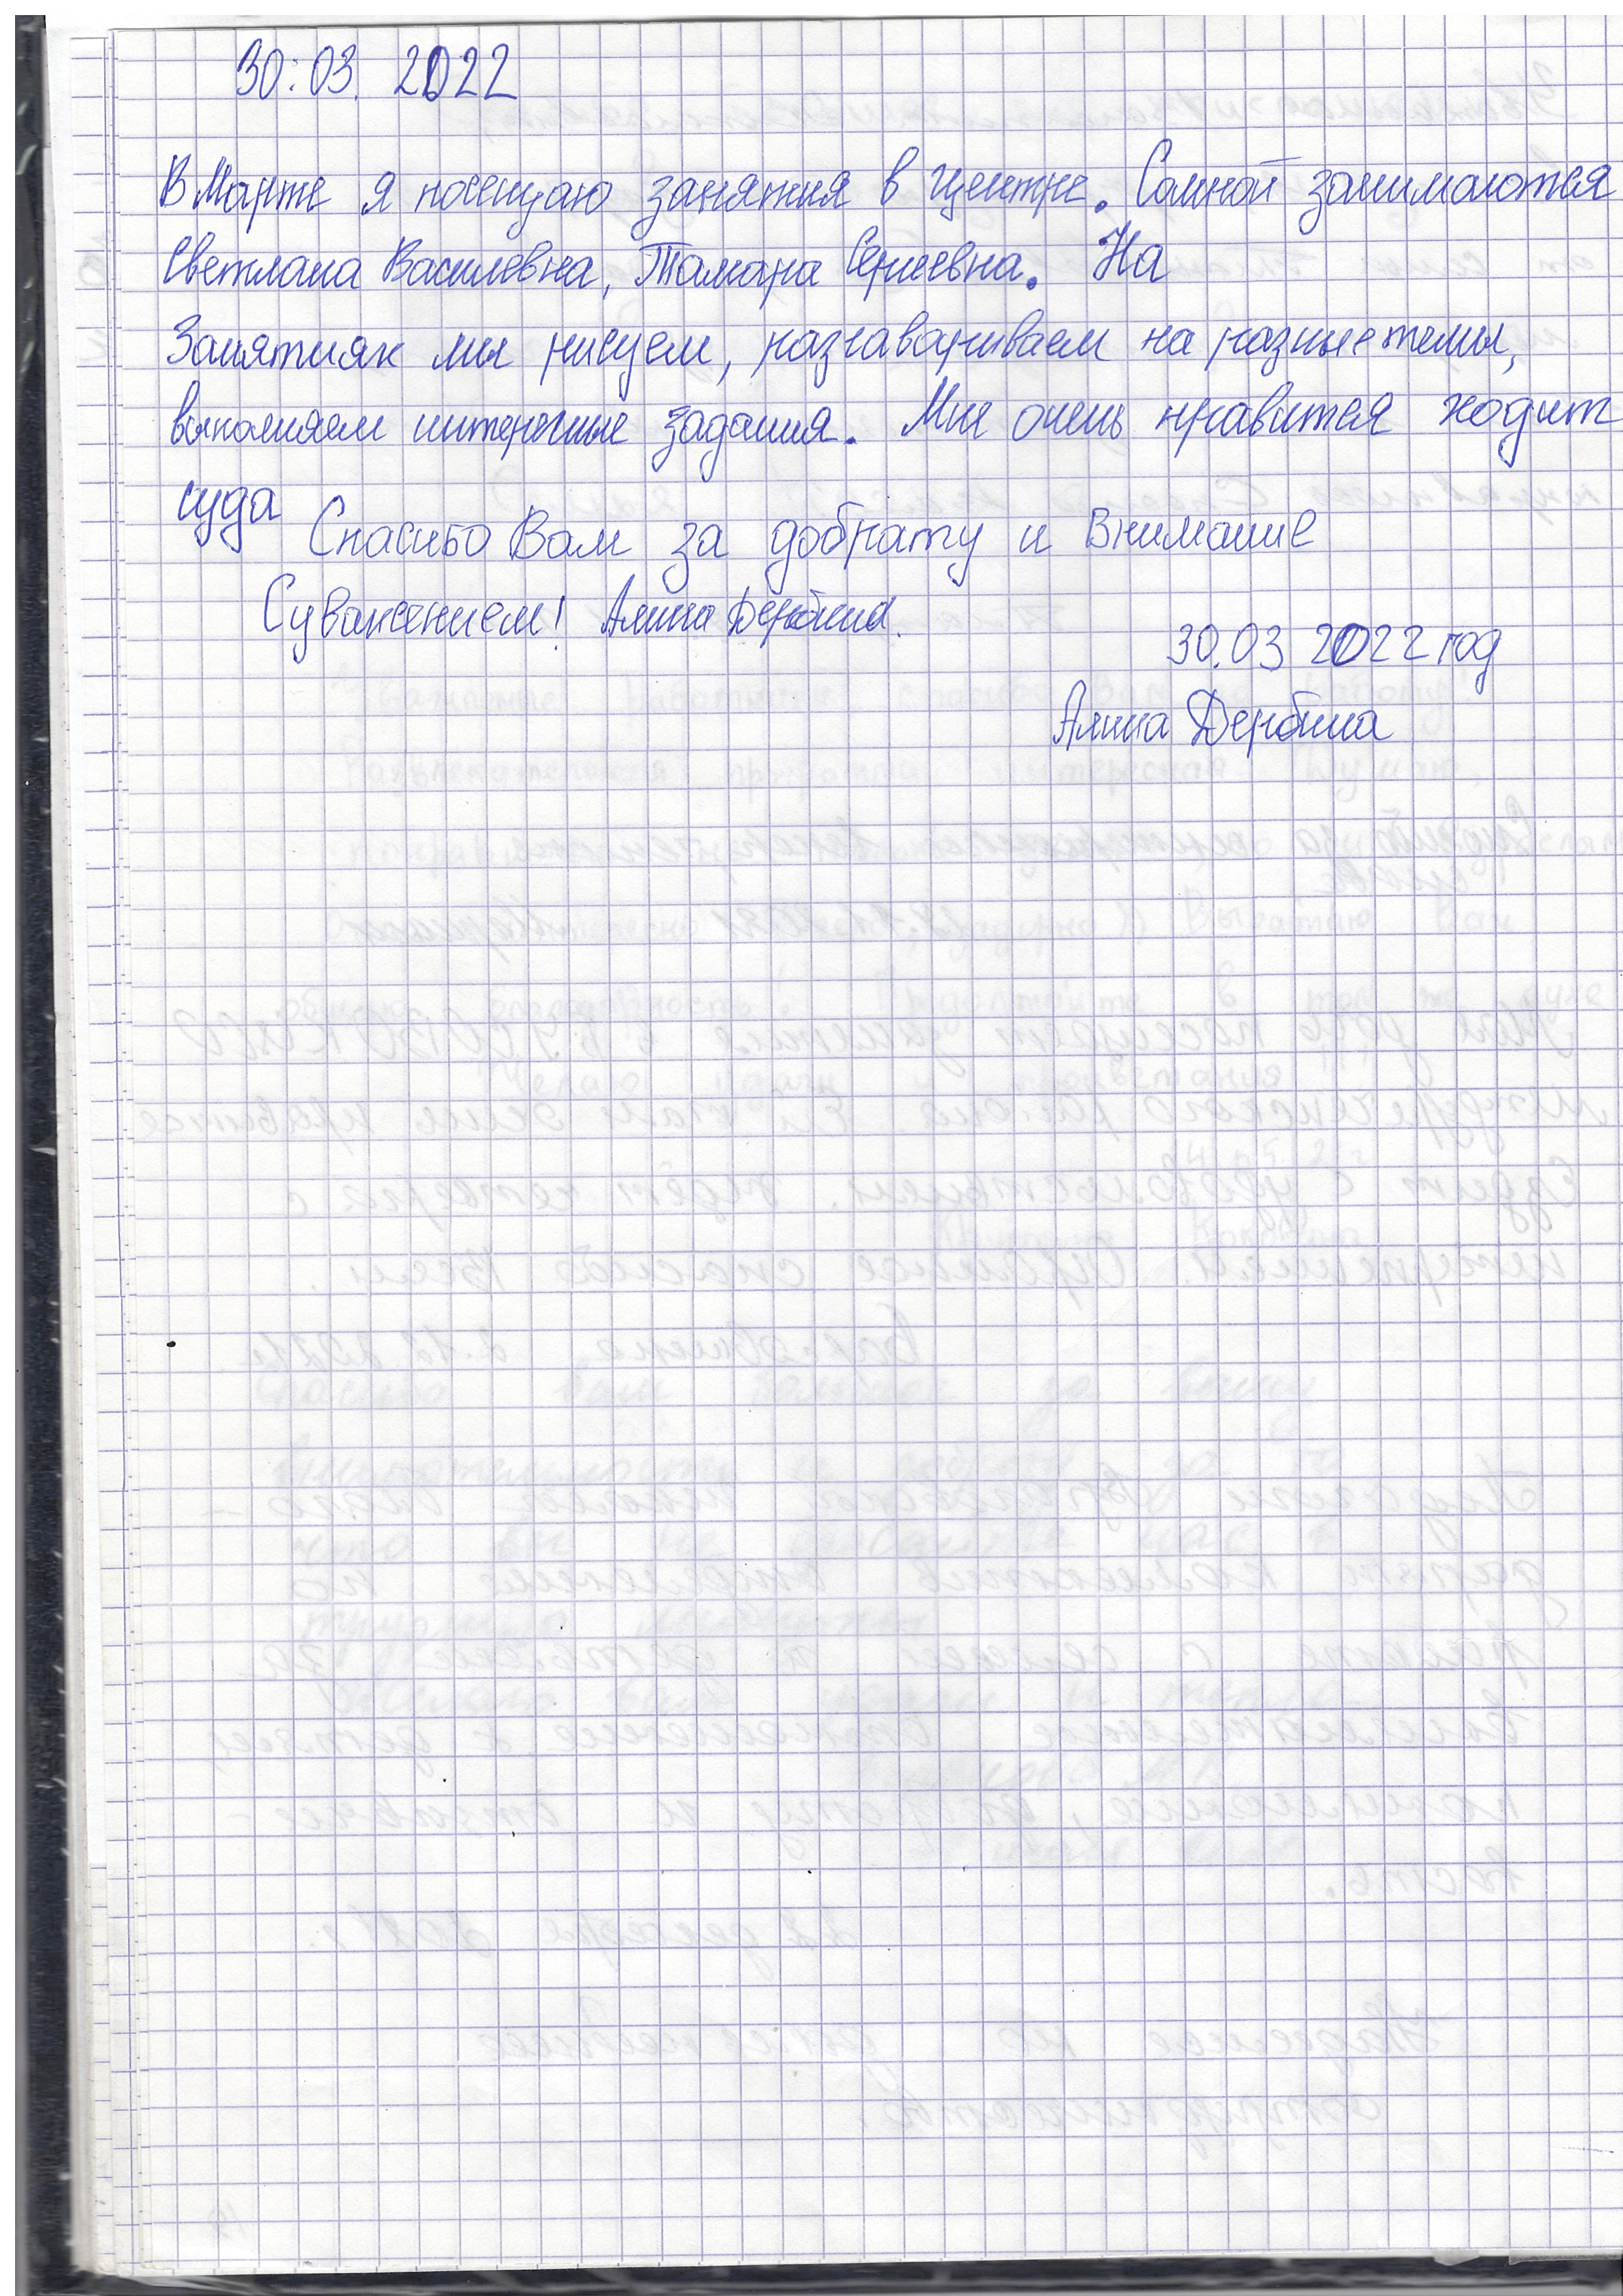 30:03. 2022
В Марте я посещаю занятия в Центре. Самной занимаются
Светлана Василевна, Тамара Сергеевна. На
Занятияк мы рисуем, разгавариваем на разные темы,
выполняем интересные задания. Мне очень нравится ходит
суда
Спасибо Вам за добрату и Внимание
Суважением! Алина Дербина.
30.03 2022 год
Алина Дербина